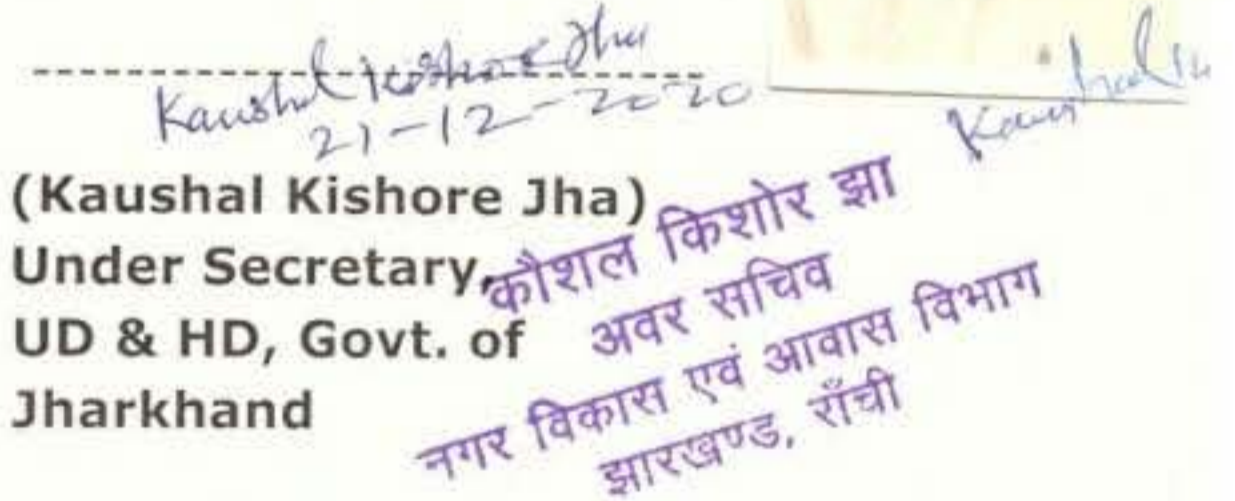 Kaushal Kishore Jha
21-12-2020
Kaushal K
(Kaushal Kishore Jha)
Under Secretary,
UD & HD, Govt. of
Jharkhand
कौशल किशोर झा
अवर सचिव
नगर विकास एवं आवास विभाग
झारखण्ड, राँची